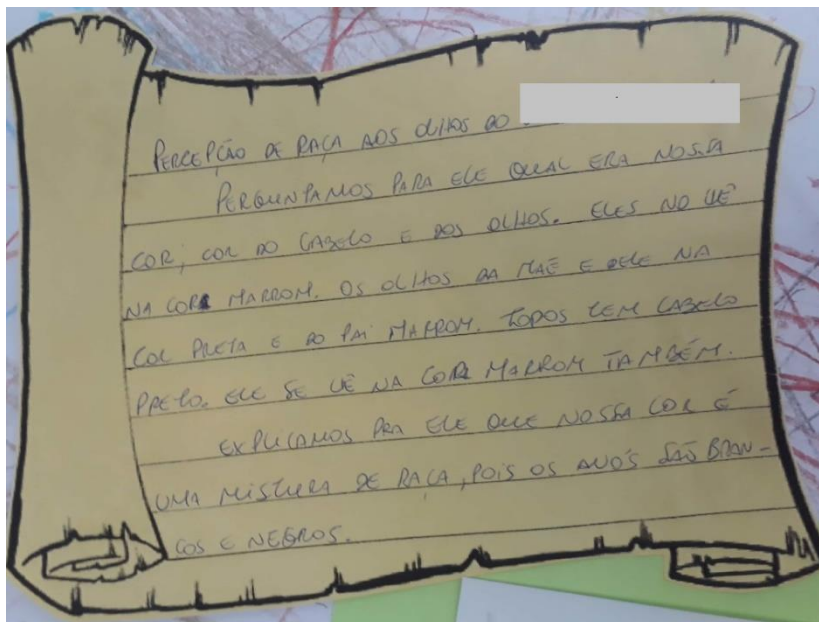 PERCEPÇÃO DE RAÇA AOS OLHOS DO
PERGUNTAMOS PARA ELE QUAL ERA NOSSA
COR, COR DO CABELO E DOS OLHOS. ELES NO VÊ
NA COR MARROM. OS OLHOS DA MÃE E DELE NA
COR PRETA E DO PAI MARROM. TODOS TEM CABELO
PRETO. ELE SE VÊ NA COR MARROM TAMBÉM.
EXPLICAMOS PRA ELE QUE NOSSA COR É
UMA MISTURA DE RAÇA, POIS OS AVÓS SÃO BRAN-
COS E NEGROS.